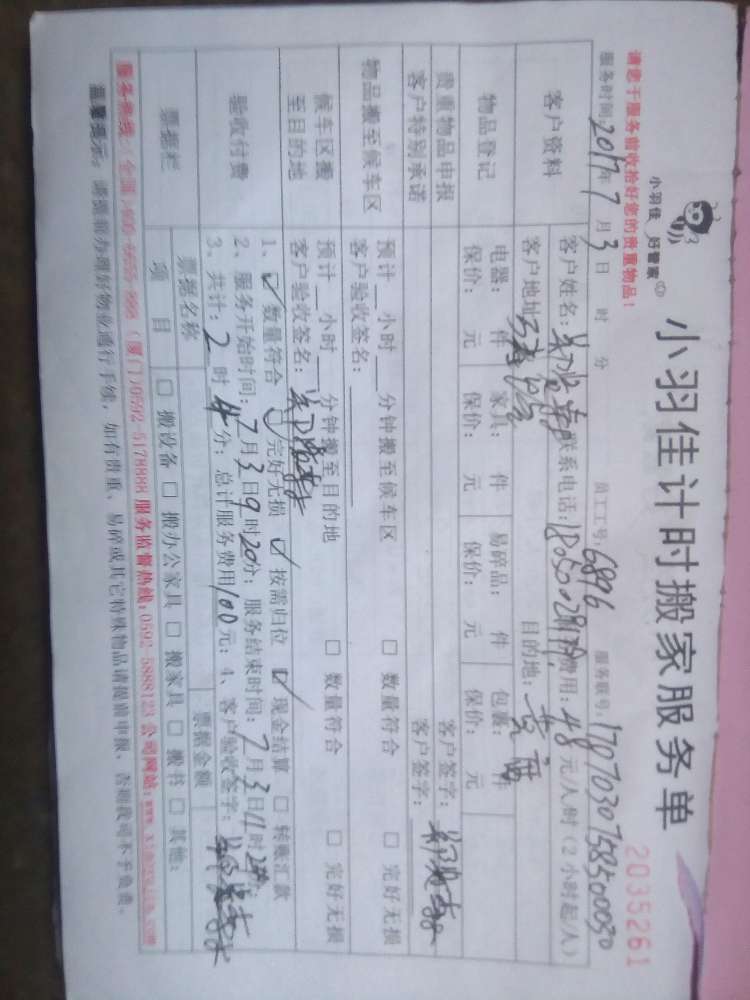 小羽佳 好管家
小羽佳计时搬家服务单
2035261
请您于服务前收拾好您的贵重物品!
员工工号: 6896 服务账号: 1707030758500030
服务时间: 2017年7月3日 时 分
客户资料
客户姓名: 联系电话: 费用: 48 元/人/时(2小时起/人)
客户地址: 目的地:
物品登记
电器: 件 家具: 件 易碎品: 件 包裹: 件
保价: 元 保价: 元 保价: 元 保价: 元
贵重物品申报 客户签字:
客户特别承诺 客户签字:
物品搬至候车区
预计__小时__分钟搬至候车区 □ 数量符合 □ 完好无损
客户验收签名:
候车区搬至目的地
预计__小时__分钟搬至目的地 □ 数量符合 □ 完好无损
客户验收签名:
验收付费
1、☑ 数量符合 ☑ 完好无损 ☑ 按需归位 ☑ 现金结算 □ 转账汇款
2、服务开始时间: 7月3日9时20分; 服务结束时间: 7月3日11时24分;
3、共计: 2时4分; 总计服务费用100元; 4、客户验收签字:
票据栏
票据名称 票据金额
项目 □ 搬设备 □ 搬办公家具 □ 搬家具 □ 搬书 □ 其他:
服务热线:(全国) (厦门)0592-5178888 服务监督热线:0592-5888123 公司网站:
温馨提示: 请提前办理好物业通行手续, 如有贵重、易碎或其它特殊物品请提前申报, 否则我司不予负责。